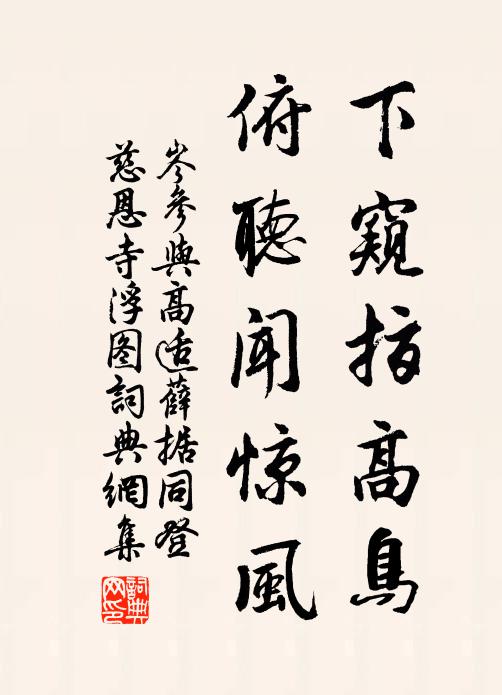 下窺指高鳥
俯聽闻惊風
岑參與高适薛据同登
慈恩寺浮图詞典網集
詞典网印